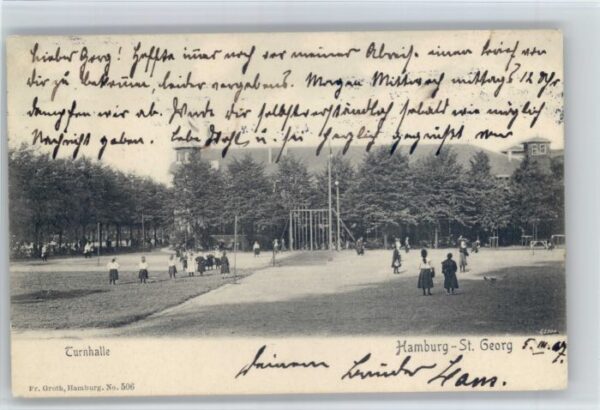 Lieber Georg! Hoffte immer noch vor meiner Abreise einen Brief von
dir zu bekommen, leider vergebens. Morgen Mittwoch mittags 12 Uhr
dampfen wir ab. Werde dir selbstverständlich sobald wie möglich
Nachricht geben. Lebe Wohl u. sei herzlich gegrüßt von
Turnhalle
Hamburg-St. Georg
5. III. 07.
deinem Bruder Hans.
Fr. Groth, Hamburg. No. 506